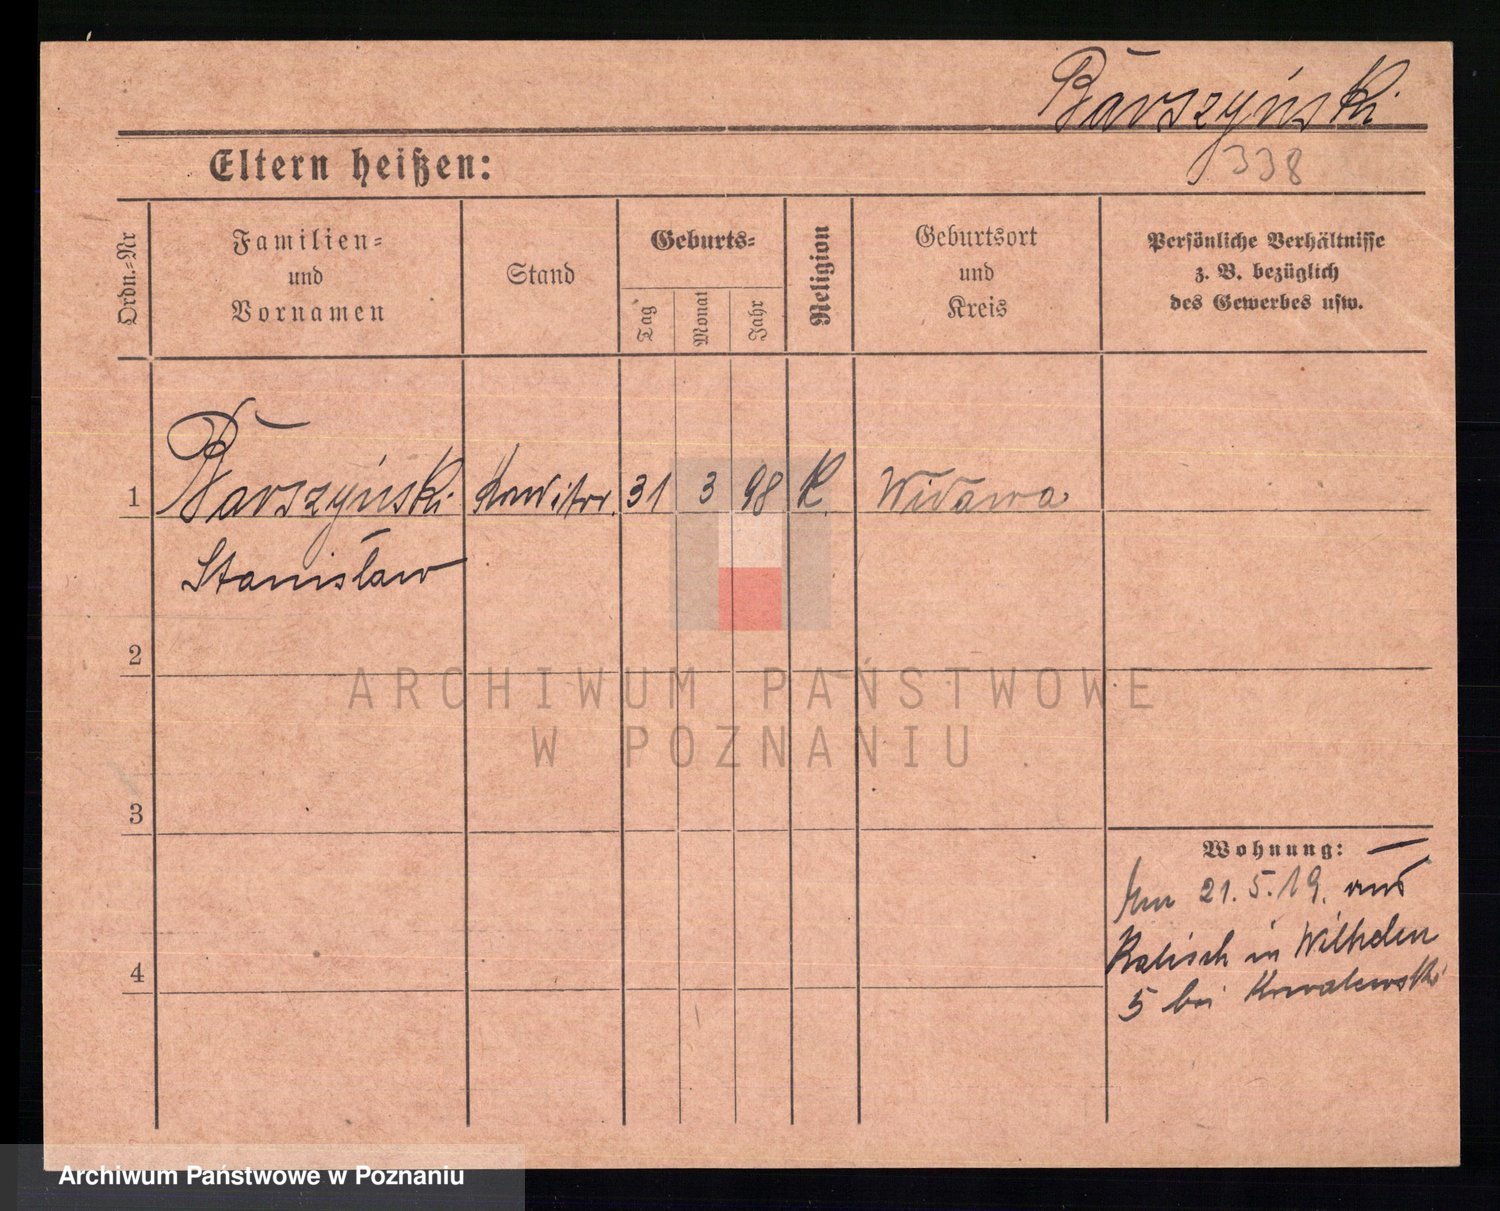 Barszyński
338
Eltern heißen:
Ordn.-Nr
Familien-
und
Vornamen
Stand
Geburts-
Tag
Monat
Jahr
Religion
Geburtsort
und
Kreis
Persönliche Verhältnisse
z. B. bezüglich
des Gewerbes usw.
1 Barszyński Konditor. 31 3 98 K. Widawa
Stanisław
2
3
4
Wohnung:
Am 21.5.19. aus
Kalisch in Wilhelm
5 bei Kowalewski
ARCHIWUM PAŃSTWOWE
W POZNANIU
Archiwum Państwowe w Poznaniu